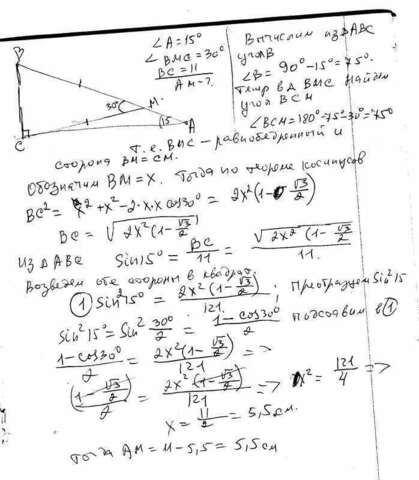 B
∠A=15°
∠BMC=30°
BC=11
AM-?
30°
M
15
A
C
Вычислим из ΔABC
угол B
∠B = 90°-15°=75°.
Тепер в Δ BMC найдем
угол BCM
∠BCM=180°-75°-30°=75°
Т.е. BMC - равнобедренный и
сторона BM=CM.
Обозначим BM=x. Тогда по теореме косинусов
BC² = x²+x²-2·x·x cos30° = 2x²(1-√3/2)
BC = √(2x²(1-√3/2))
Из ΔABC Sin15° = BC/11 = √(2x²(1-√3/2))/11.
Возведем обе стороны в квадрат:
① Sin²15° = 2x²(1-√3/2)/121; Преобразуем Sin²15
Sin²15° = Sin² 30°/2 = (1-cos30°)/2 подставим в ①
(1-cos30°)/2 = 2x²(1-√3/2)/121 =>
(1-√3/2)/2 = 2x²(1-√3/2)/121 => x² = 121/4 =>
x = 11/2 = 5,5 см.
Тогда AM = 11-5,5 = 5,5 см